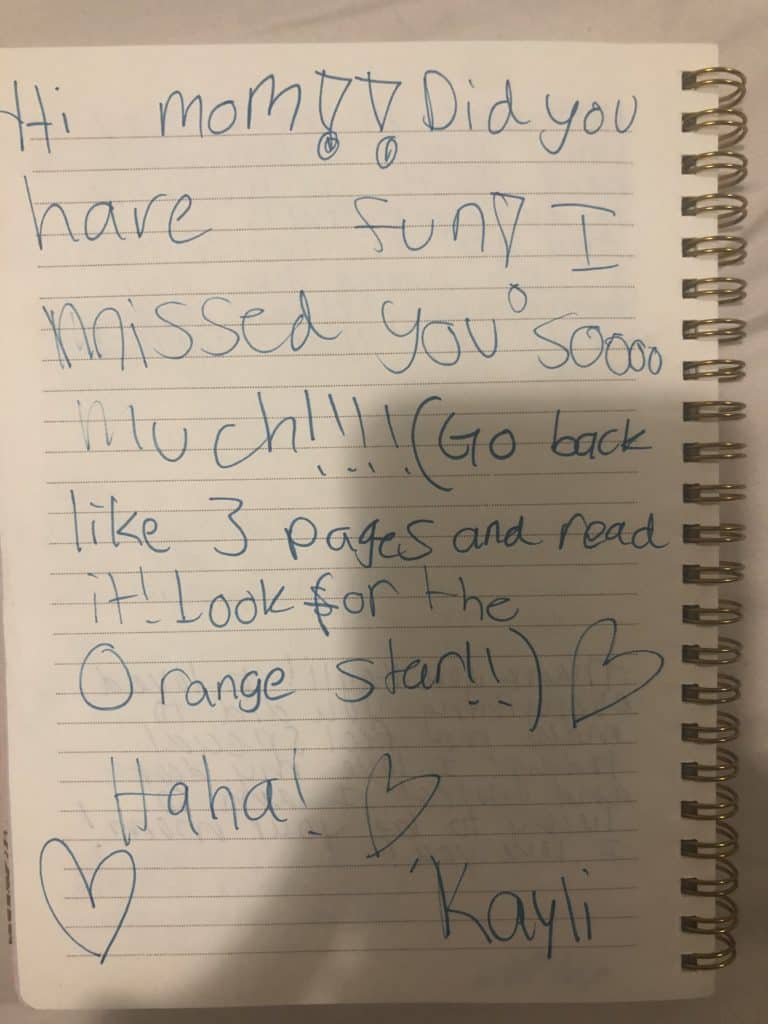 Hi mom!! Did you
have fun! I
missed you soooo
much!!!! (Go back
like 3 pages and read
it! Look for the
Orange star!!) ♡
Haha! ♡
♡ Kayli